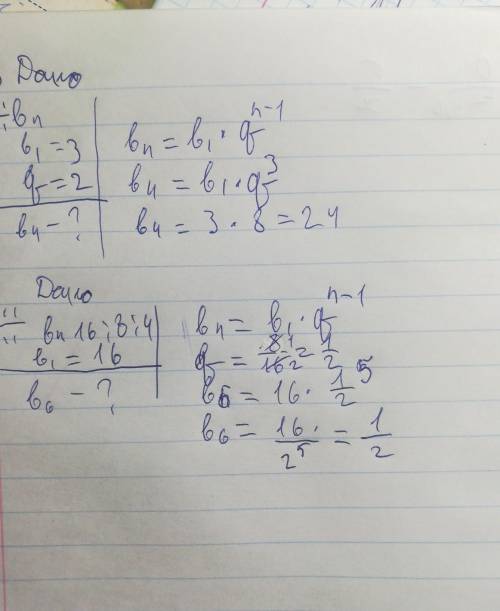 Дано
∺ bn
b₁ = 3
q = 2
b₄ - ?
bn = b₁ · qⁿ⁻¹
b₄ = b₁ · q³
b₄ = 3 · 8 = 24
Дано
∺ bn 16; 8; 4
b₁ = 16
b₆ - ?
bn = b₁ · qⁿ⁻¹
q = 8/16 = 1/2
b₆ = 16 · 1/2⁵
b₆ = 16·/2⁵ = 1/2